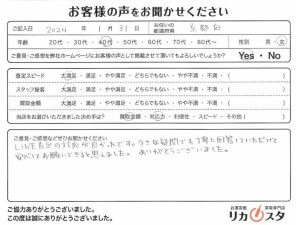 お客様の声をお聞かせください
ご記入日 2024 年 1 月 31 日 お住いの都道府県 京都府
年齢 20代・30代・40代・50代・60代・70代・80代〜 性別 男・女
ご意見・ご感想を弊社ホームページにお客様の声として掲載させて頂いてもよろしいでしょうか? Yes・No
査定スピード 大満足・満足・やや満足・どちらでもない・やや不満・不満・( )
スタッフ接客 大満足・満足・やや満足・どちらでもない・やや不満・不満・( )
買取金額 大満足・満足・やや満足・どちらでもない・やや不満・不満・( )
当店をお選びいただきました決め手は? 買取金額・対応力・利便性・スピード・その他( )
ご意見・ご感想などぜひお聞かせください
LINE査定の対応が良かったです。小さな疑問にも丁寧に回答していただけて
安心してお願いできると思えました。ありがとうございました。
ご協力ありがとうございました。
この度は誠にありがとうございました。
お酒買取 買取専門店
リカスタ